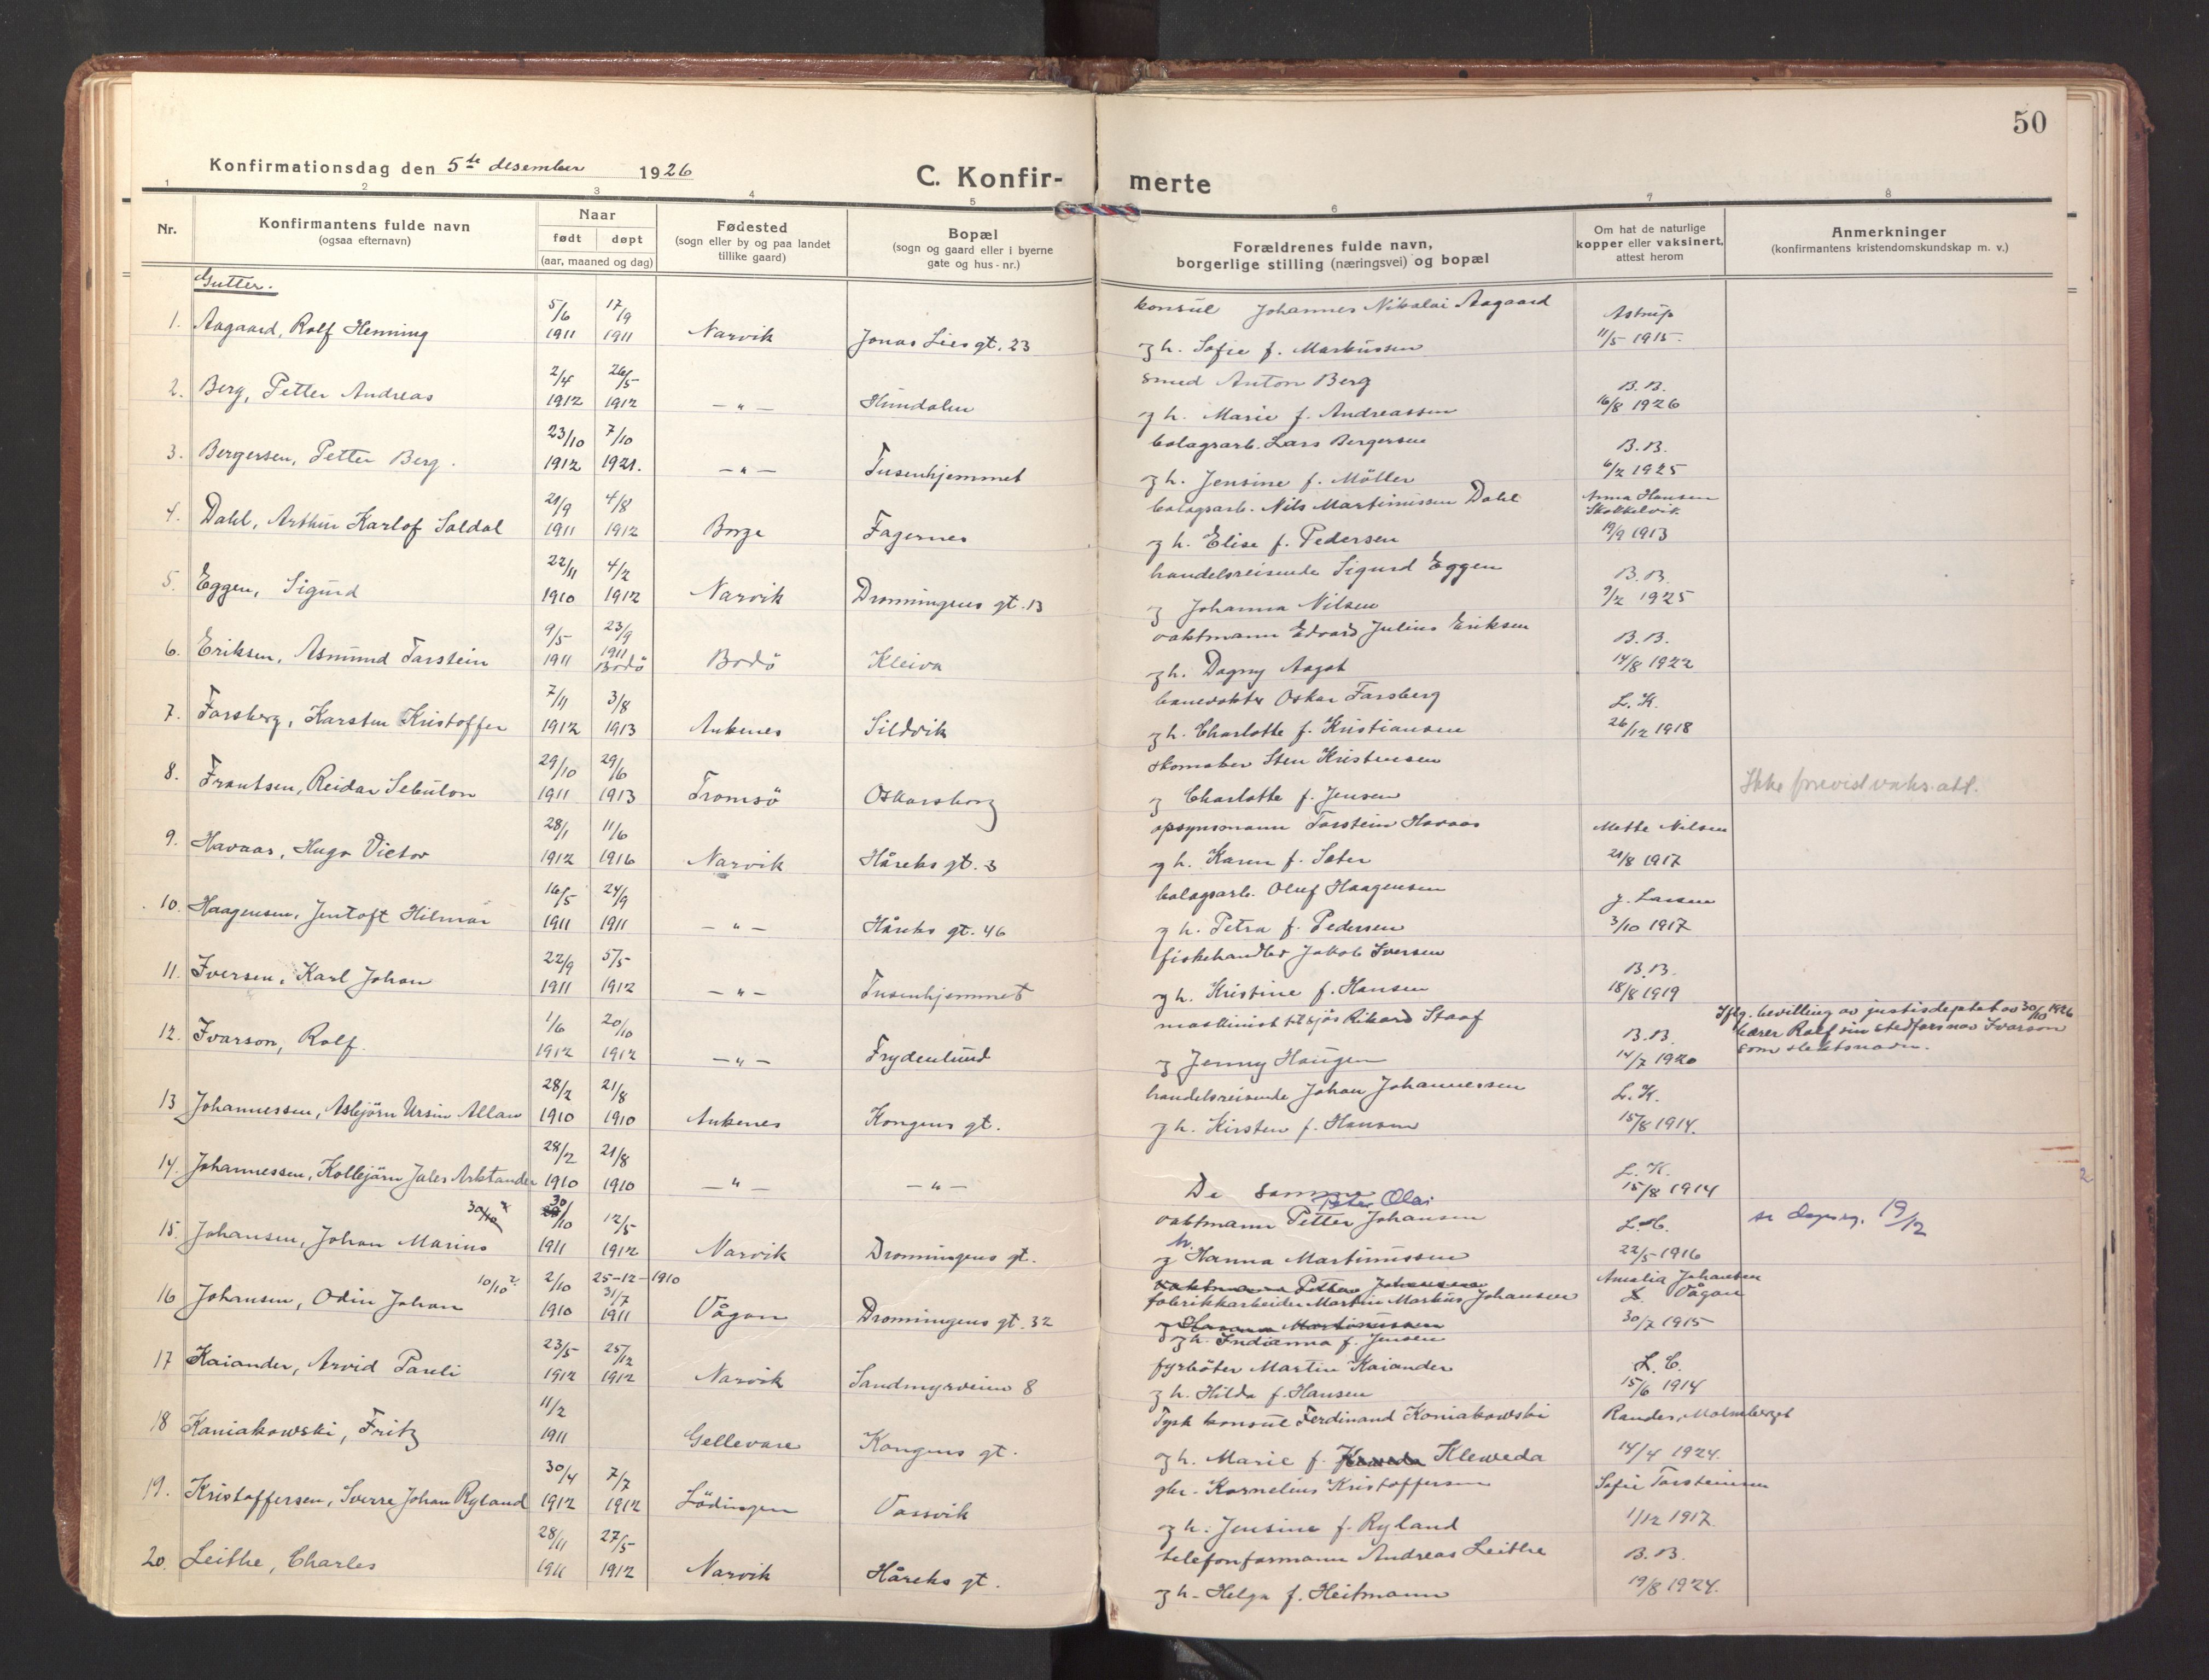 50
Konfirmationsdag den 5te desember 1926
C. Konfir-merte
1 2 3 4 5 6 7 8
Nr.
Konfirmantens fulde navn
(ogsaa efternavn)
Naar
født døpt
(aar, maaned og dag)
Fødested
(sogn eller by og paa landet
tillike gaard)
Bopæl
(sogn og gaard eller i byerne
gate og hus-nr.)
Forældrenes fulde navn,
borgerlige stilling (næringsvei) og bopæl
Om hat de naturlige
kopper eller vaksinert,
attest herom
Anmerkninger
(konfirmantens kristendomskundskap m. v.)
Gutter.
5/6 17/9 konsul Johannes Nikolai Aagaard Astrup
1. Aagaard, Rolf Henning 1911 1911 Narvik Jonas Lies gt. 23 g h. Sofie f. Markussen 11/5 1915.
2/4 26/5 smed Anton Berg B. B.
2. Berg, Petter Andreas 1912 1912 — " — Hundalen g h. Marie f. Andreassen 16/8 1926
23/10 7/10 bolagsarb. Lars Bergersen B. B.
3. Bergersen, Petter Berg. 1912 1921. — " — Tusenhjemmet g h. Jensine f. Möller 6/2 1925
21/9 4/8 bolagsarb. Nils Martinissen Dahl Anna Hansen
Skokkelvik
4. Dahl, Arthur Karlof Soldal 1911 1912 Borge Fagernes g h. Elise f. Pedersen 19/9 1913
22/11 4/2 handelsreisende Sigurd Eggen B. B.
5. Eggen, Sigurd 1910 1912 Narvik Dronningens gt. 13 g Johanna Nilsen 9/2 1925
9/5 23/9 vaktmann Edvard Julius Eriksen B. B.
6. Eriksen, Asmund Torstein 1911 1911 Bodö Bodö Kleiva g h. Dagny Aagot 14/8 1922
7/11 3/8 banevokter Oskar Forsberg L. K.
7. Forsberg, Karsten Kristoffer 1912 1913 Ankenes Sildvik g h. Charlotte f. Kristiansen 26/12 1918
29/10 29/6 skomaker Sten Kristensen
8. Frantsen, Reidar Sebulon 1911 1913 Tromsö Oskarsborg g Charlotte f. Jensen Ikke previst vaks. att.
28/1 11/6 opsynsmann Torstein Havaas Mette Nilsen
9. Havaas, Hugo Victor 1912 1916 Narvik Håreks gt. 3 g h. Karen f. Sæter 21/8 1917
16/5 24/9 bolagsarb. Oluf Haagensen J. Larsen
10. Haagensen, Jentoft Hilmar 1911 1911 — " — Håreks gt. 46 g h. Petra f. Pedersen 3/10 1917
22/9 5/5 fiskehandler Jakob Iversen B. B.
11. Iversen, Karl Johan 1911 1912 — " — Tusenhjemmet g h. Kristine f. Hansen 18/8 1919
1/6 20/10 maskinist til sjøs Rikard Staaf B. B.
12. Ivarson, Rolf. 1912 1912 — " — Frydenlund g Jenny Haugen 14/7 1920
Iflg. bevilling av justisdeptet av 30/10 1926
bærer Rolf sin stedfars nav Ivarson
som slektsnavn.
28/2 21/8 handelsreisende Johan Johannessen L. K.
13 Johannessen, Asbjörn Ursin Allan 1910 1910 Ankenes Kongens gt. g h. Kirsten f. Hansen 15/8 1914.
28/2 21/8 L. K.
14. Johannessen, Kollbjörn Jales Arktander 1910 1910 — " — — " — De samme 15/8 1914
30/10 ? 30/10 12/5 Peter Olai
vaktmann Petter Johansen L. C. se dagreg. 19/12
15. Johansen, Johan Marius 1911 1912 Narvik Dronningens gt. g h. Hanna Martinussen 22/5 1916
10/10 ? 2/10 25-12-1910 31/7 vaktmann Petter Johansen Amalia Johansen
fabrikkarbeider Martin Markus Johansen Vågan
16 Johansen, Odin Johan 1910 1911 Vågan Dronningens gt. 32 g Hanna Martinussen 30/7 1915
g h. Indianna f. Jensen
23/5 25/12 fyrböter Martin Kaiander L. C.
17 Kaiander, Arvid Pareli 1912 1912 Narvik Sandmyrveien 8 g h. Hilda f. Hansen 15/6 1914
11/2 Tysk konsul Ferdinand Koniakowski Rander, Malmberget
18 Koniakowski, Fritz 1911 Gellevare Kongens gt. g h. Marie f. Kleweda 14/4 1924.
30/4 7/7 gbr. Kornelius Kristoffersen Sofie Torsteinsen
19. Kristoffersen, Sverre Johan Ryland 1912 1912 Lödingen Vassvik g h. Jensine f. Ryland 1/12 1917.
28/11 27/5 telefonformann Andreas Leithe B. B.
20. Leithe, Charles 1911 1912 Narvik Håreks gt. g h. Helga f. Heitmann 19/8 1924.
2